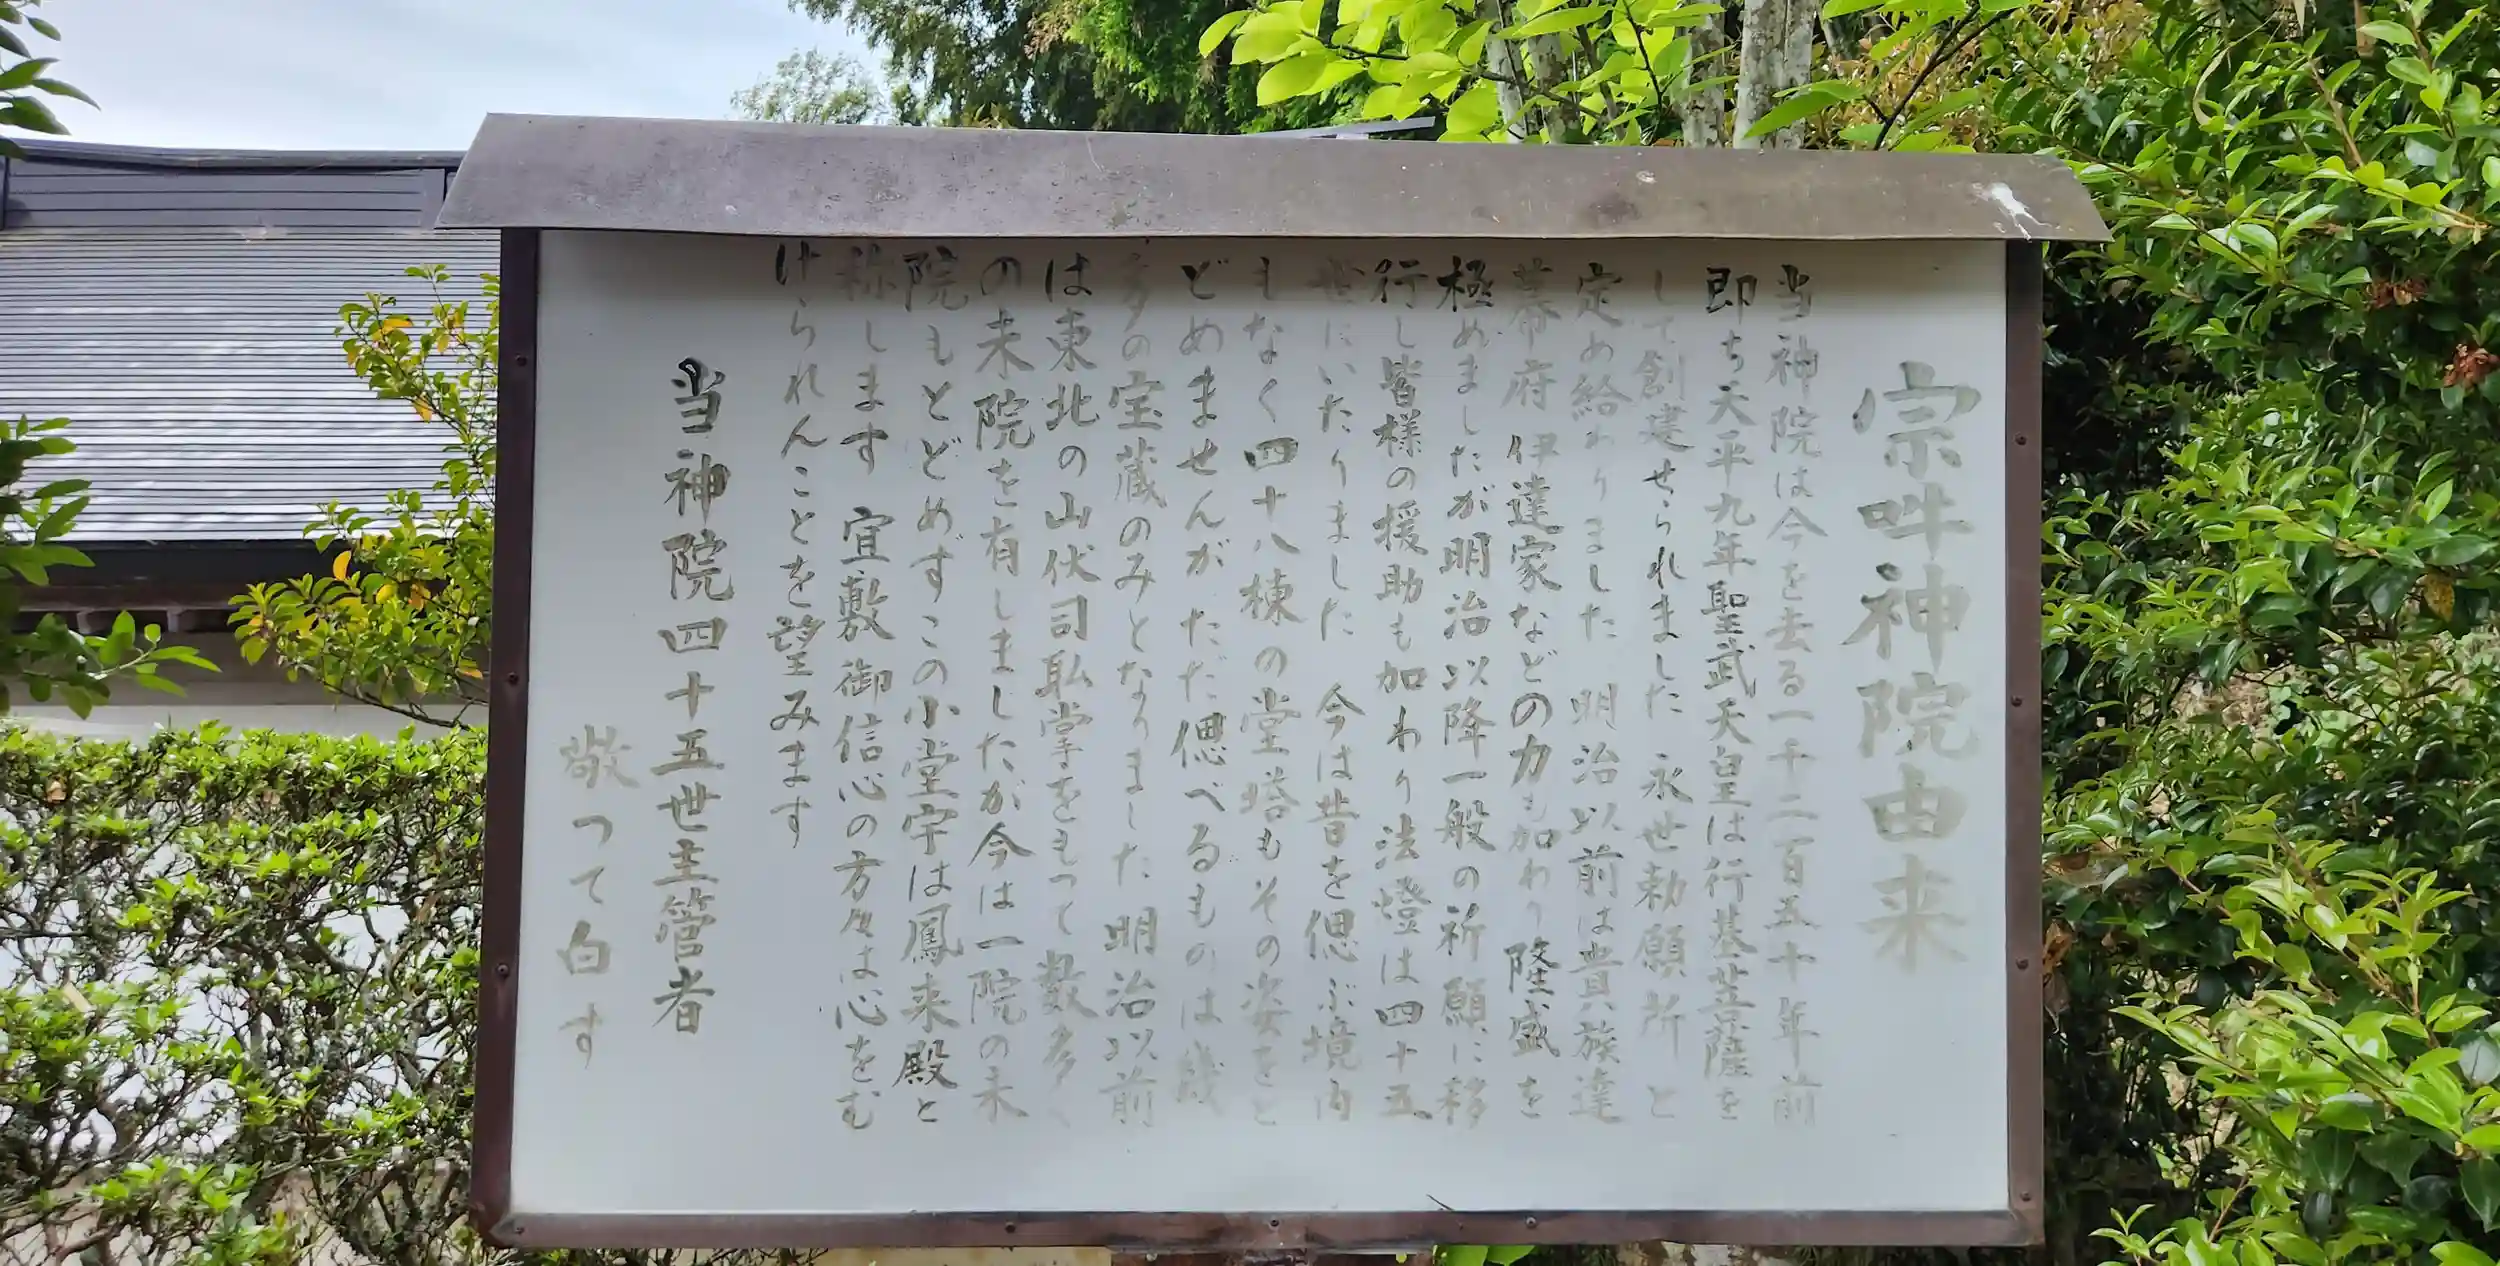 宗吽神院由来
当神院は今を去る一千二百五十年前
即ち天平九年聖武天皇は行基菩薩を
して創建せられました 永世勅願所と
定め給わりました 明治以前は貴族達
幕府 伊達家などの力も加わり 隆盛を
極めましたが明治以降一般の祈願に移
行し皆様の援助も加わり法燈は四十五
世にいたりました 今は昔を偲ぶ境内
もなく四十八棟の堂塔もその姿をと
どめませんが ただ偲べるものは幾
多の宝蔵のみとなりました 明治以前
は東北の山伏司私掌をもって数多く
の末院を有しましたが今は一院の末
院もとどめずこの小堂宇は鳳来殿と
称します 宜敷御信心の方々は心をむ
けられんことを望みます
当神院四十五世主管者
敬つて白す